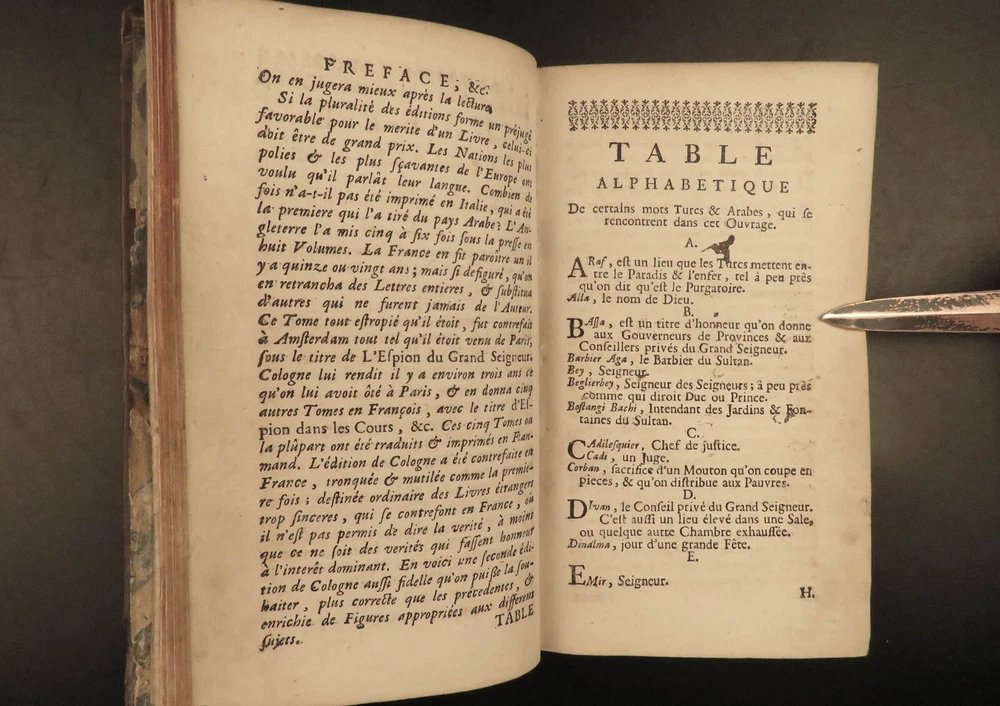 PREFACE, &c.
On en jugera mieux après la lecture
Si la pluralité des éditions forme un préjugé
favorable pour le merite d'un Livre, celui-ci
doit être de grand prix. Les Nations les plus
polies & les plus sçavantes de l'Europe ont
voulu qu'il parlât leur langue. Combien de
fois n'a-t-il pas été imprimé en Italie, qui a été
la premiere qui l'a tiré du pays Arabe? L'An-
gleterre l'a mis cinq à six fois sous la presse en
huit Volumes. La France en fit paroître un il
y a quinze ou vingt ans; mais si defiguré, qu'on
en retrancha des Lettres entieres, & substitua
d'autres qui ne furent jamais de l'Auteur.
Ce Tome tout estropié qu'il étoit, fut contrefait
à Amsterdam tout tel qu'il étoit venu de Paris,
sous le titre de L'Espion du Grand Seigneur.
Cologne lui rendit il y a environ trois ans ce
qu'on lui avoit ôté à Paris, & en donna cinq
autres Tomes en François, avec le titre d'Es-
pion dans les Cours, &c. Ces cinq Tomes ont
la plûpart ont été traduits & imprimés en Flan-
mand. L'édition de Cologne a été contrefaite en
France, tronquée & mutilée comme la premie-
re fois; destinée ordinaire des Livres étrangers
trop sinceres, qui se contrefont en France, où
il n'est pas permis de dire la verité, à moins
que ce ne soit des verités qui fassent honneur
à l'interêt dominant. En voici une seconde édi-
tion de Cologne aussi fidelle qu'on puisse la sou-
haiter, plus correcte que les précedentes, &
enrichie de Figures appropriées aux différent
sujets.
TABLE
TABLE
ALPHABETIQUE
De certains mots Turcs & Arabes, qui se
rencontrent dans cet Ouvrage.
A.
ARaf, est un lieu que les Turcs mettent en-
tre le Paradis & l'enfer, tel à peu près
qu'on dit qu'est le Purgatoire.
Alla, le nom de Dieu.
B.
BAssa, est un titre d'honneur qu'on donne
aux Gouverneurs de Provinces & aux
Conseillers privés du Grand Seigneur.
Barbier Aga, le Barbier du Sultan.
Bey, Seigneur.
Beglierbey, Seigneur des Seigneurs; à peu près
comme qui diroit Duc ou Prince.
Bostangi Bachi, Intendant des Jardins & Fon-
taines du Sultan.
C.
CAdilesquier, Chef de justice.
Cadi, un Juge.
Corban, sacrifice d'un Mouton qu'on coupe en
pieces, & qu'on distribue aux Pauvres.
D.
DIvan, le Conseil privé du Grand Seigneur.
C'est aussi un lieu élevé dans une Sale,
ou quelque autre Chambre exhaussée.
Dinalma, jour d'une grande Fête.
E.
EMir, Seigneur.
H.